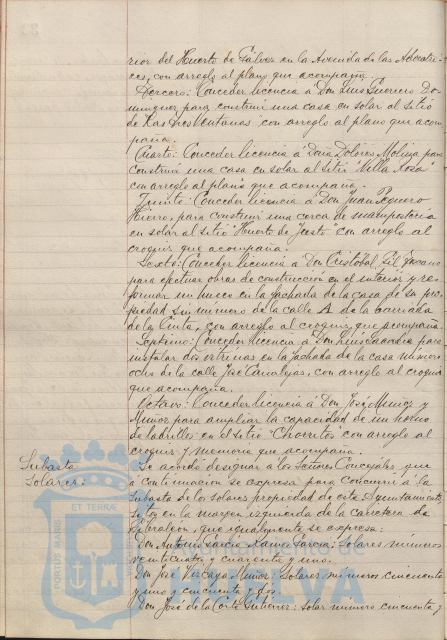 rior del Huerto de Gálvez en la Avenida de las Adoratri-
ces, con arreglo al plano que acompaña.
Tercero: Conceder licencia á Don Luis Guerrero Do-
minguez para construir una casa en solar al sitio
de Las Tres Ventanas con arreglo al plano que acom
paña.
Cuarto: Conceder licencia á Doña Dolores Molina para
construir una casa en solar al sitio "Villa Rosa"
con arreglo al plano que acompaña.
Quinto: Conceder licencia á Don Juan
Hierro, para construir una cerca de mampostería
en solar al sitio "Huerto de Justo" con arreglo al
croquis que acompaña.
Sexto: Conceder licencia á Don Cristobal Gil
para efectuar obras de construcción en el interior y re-
formar un hueco en la fachada de la casa de su pro-
piedad sin número de la calle A de la barriada
de la Cinta, con arreglo al croquis que acompaña.
Séptimo: Conceder licencia á Don Luis para
instalar dos vitrinas en la fachada de la casa número
ocho de la calle José Canalejas, con arreglo al croquis
que acompaña.
Octavo: Conceder licencia á Don José Muñoz y
Muñoz para ampliar la capacidad de un horno
de ladrillo en el sitio "Chorrito" con arreglo al
croquis y memoria que acompaña.
Subasta
Solares:
Se acordó designar a los Señores Concejales que
a continuación se expresa para concurrir á la
subasta de los solares propiedad de este Ayuntamiento
sitos en la margen izquierda de la carretera de
Gibraleon, que igualmente se expresa:
Don Antonio García Ramos García: Solares números
veinticuatro y cuarenta y uno.
Don José Vizcaya Muñoz: Solares números cincuenta
y uno y cincuenta y dos.
Don José de la Corte Gutierrez: Solar número cincuenta y
PORTUS MARIS
ET TERRAE
Ayuntamiento
HUELVA